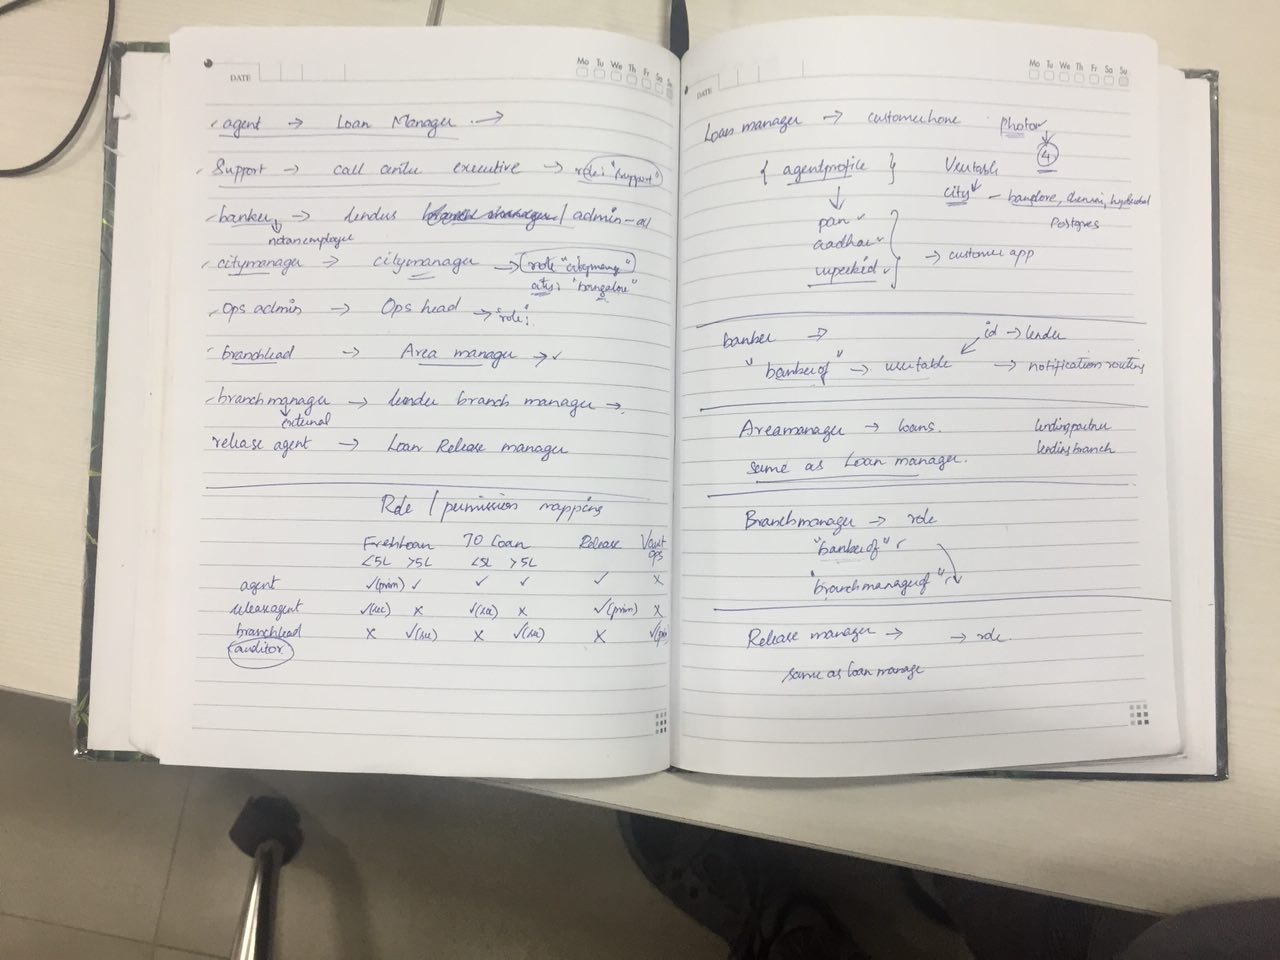 Mo Tu We Th Fr Sa Su
DATE
agent → Loan Manager →
Support → call centre executive → role: "support"
banker → lenders / admin-
not an employee
citymanager → citymanager → role "citymange"
city: "bangalore"
Ops admin → Ops head → "role:
branchlead → Area manager → ✓
branch manager → lender branch manager →
external
release agent → Loan Release manager
Role / permission mapping
Freshloan TO Loan Release Vault ops
<5L >5L <5L >5L
agent ✓(prim) ✓ ✓ ✓ ✓ x
releaseagent ✓(sec) x ✓(sec) x ✓(prim) x
branchlead x ✓(sec) x ✓(sec) x ✓(pri
auditor
Mo Tu We Th Fr Sa Su
DATE
Loan manager → customerhone photo
4
{ agentprofile } Usertable
city - banglore, chennai, hyderabad
Postgres
pan ✓
aadhaar ✓
superkid ✓ → customer app
banker → id → lender
"bankerof" → usertable → notification routing
Areamanager → loans. lendingpartner
same as Loan manager. lendingbranch
Branchmanager → role
"bankerof"
"branchmanagerof"
Release manager → → role.
same as loan manage